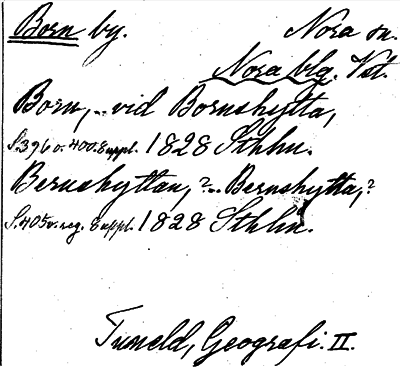 Born by. Nora sn.
Nora blg. Vst.
Born, - vid Bornshytta,
S. 396 o. 400. Suppl. 1828 Sthlm.
Bernshyttan, ? - Bernshytta, ?
S. 405 o. reg. Suppl. 1828 Sthlm.
Tuneld, Geografi. II.